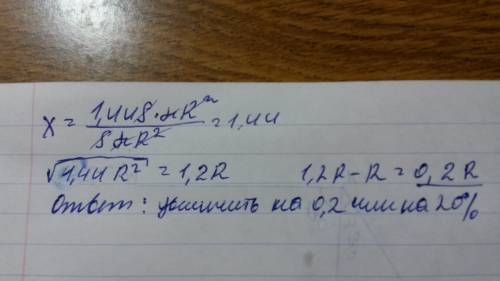 X = 1,44S·πR² / SπR² = 1,44
√1,44R² = 1,2R 1,2R−R = 0,2R
Ответ: увеличить на 0,2 или на 20%